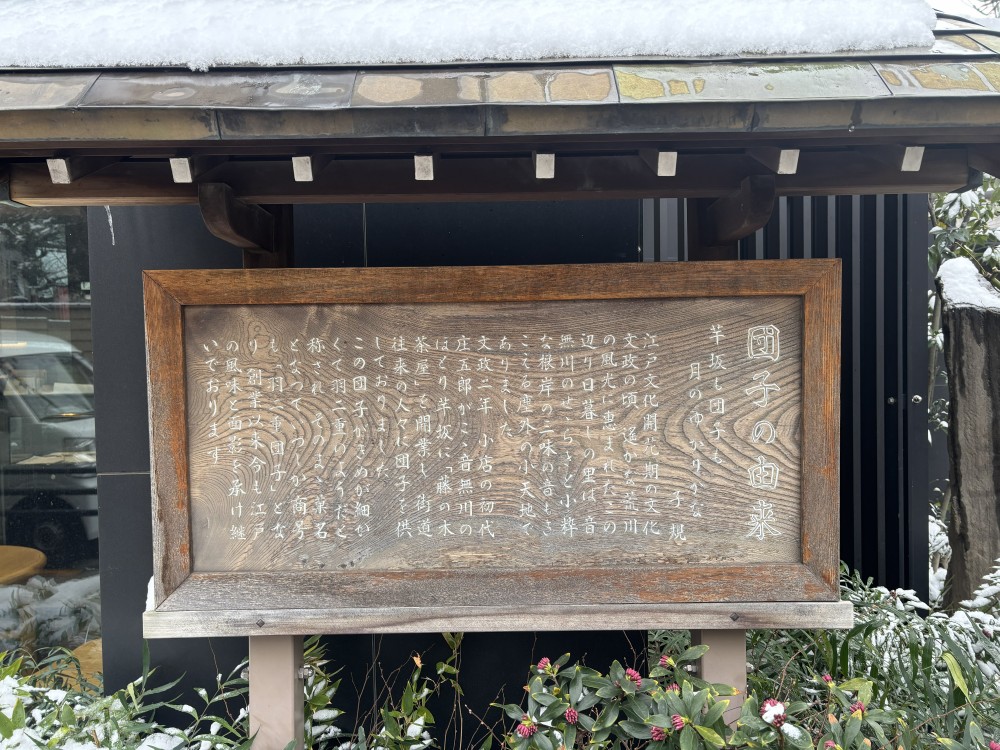 団子の由来
芋坂も団子も
月のゆかりかな
子規
江戸文化開花期の文化
文政の頃、遥かな荒川
の風光に恵まれたこの
辺り日暮しの里は、音
無川のせゝらぎと小粋
な根岸の三味の音もき
こえる塵外の小天地で
ありました
文政二年、小店の初代
庄五郎がここ音無川の
ほとり芋坂に「藤の木
茶屋」を開業し、街道
往来の人々に団子を供
しておりました
この団子がきめが細か
くて羽二重のようだと
称され、そのまゝ菓名
となって、いつか商号
も「羽二重団子」とな
り、創業以来今も江戸
の風味と面影を承け継
いでおります